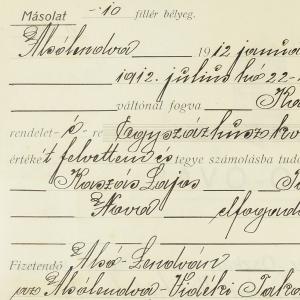 Másolat -·10 fillér bélyeg.
Alsólendva 1912 január
1912. julius hó 22-
váltónál fogva Ka
rendelet-é-re Egyszázhusz ko
értéket felvettem és tegye számolásba tud
Kaszás Lajos
Nova elfogad
Fizetendő Alsó-Lendván
pzo Alsólendva-Vidéki Taka